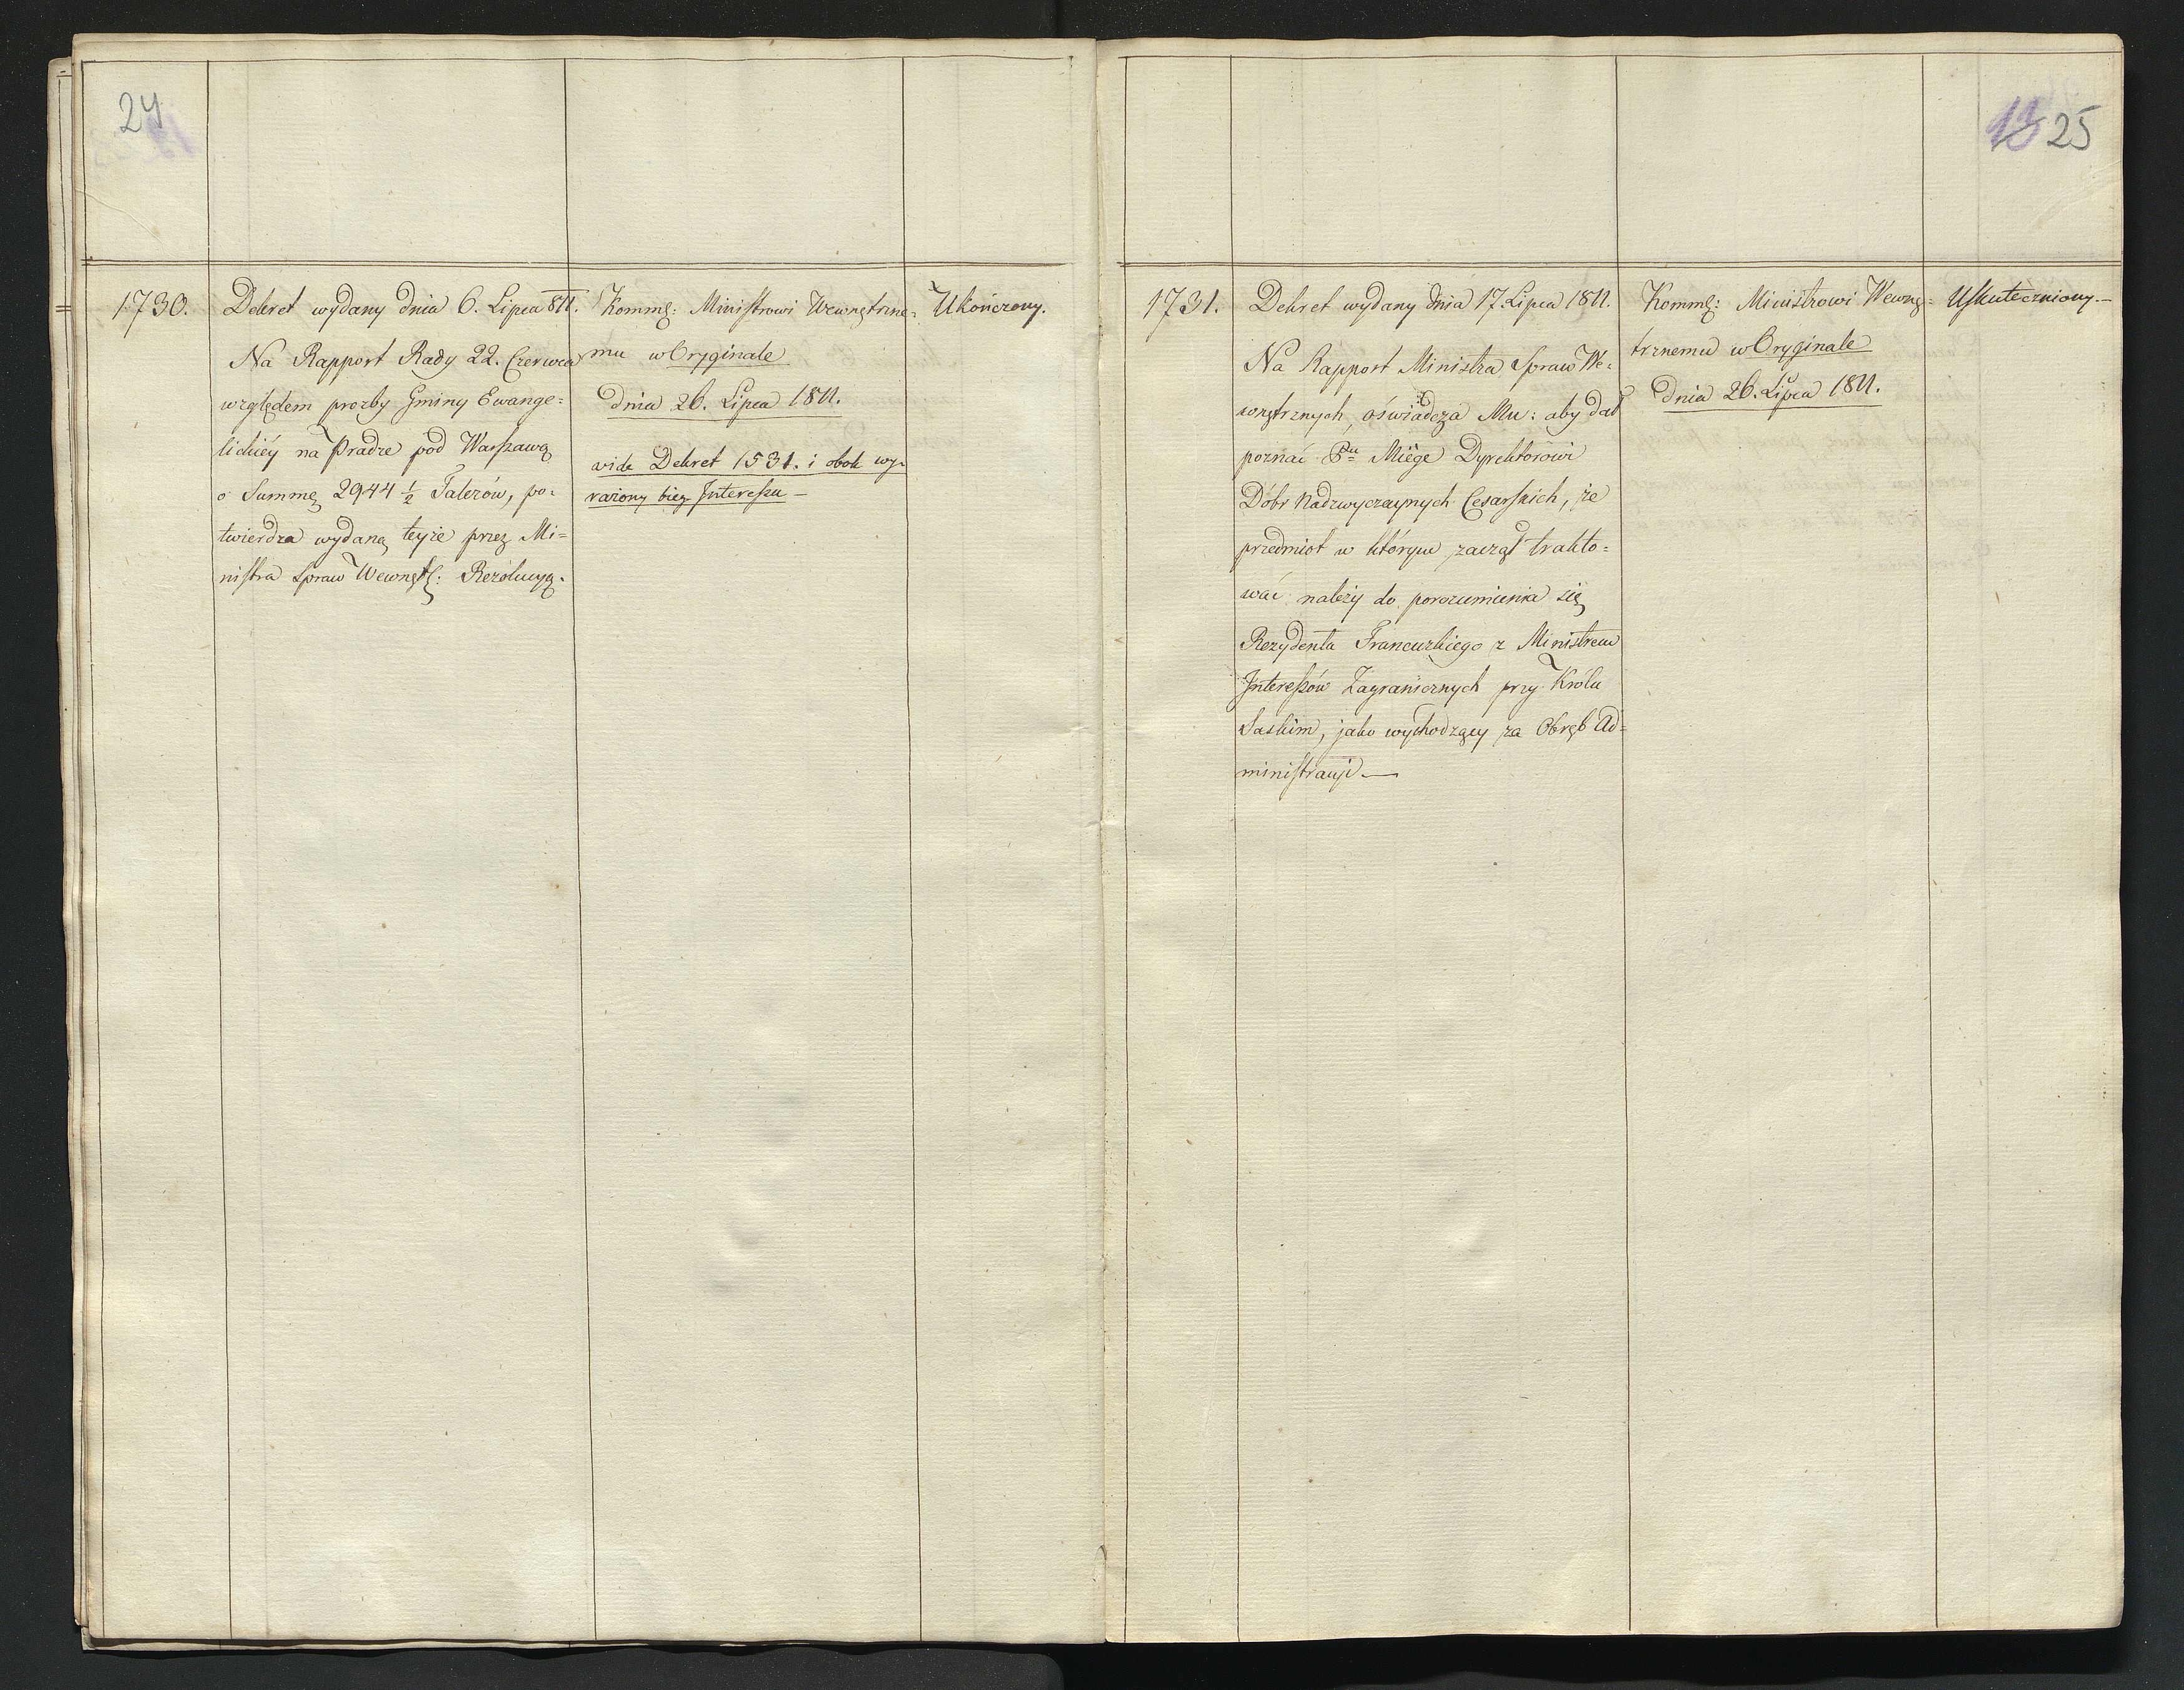 24
1730.
Dekret wydany dnia 6. Lipca 811.
Na Rapport Rady 22. Czerwca
względem prozby Gminy Ewange=
lickiéy na Pradze pod Warszawą
o Summę 2944 ½ Talerów, po=
twierdza wydaną teyże przez Mi=
nistra Spraw Wewnętr: Rezolucyą.
Kommę: Ministrowi Wewnętrzne=
mu w Oryginale
dnia 26. Lipca 1811.
vide Dekret 1531. i obok wy=
rażony bieg Interessu —
Ukończony.
13 25
1731.
Dekret wydany dnia 17. Lipca 1811.
Na Rapport Ministra Spraw We=
wnętrznych, oświadcza Mu: aby dał
poznać Pnu Miège Dyrektorowi
Dóbr Nadzwyczaynych Cesarskich, że
przedmiot w którym zaczął trakto=
wać należy do porozumienia się
Rezydenta Francuzkiego z Ministrem
Interessów Zagranicznych przy Królu
Saskim, jako wychodzący za Obręb Ad=
ministracyi —
Kommę: Ministrowi Wewnę=
trznemu w Oryginale
dnia 26. Lipca 1811.
Uskuteczniony. —